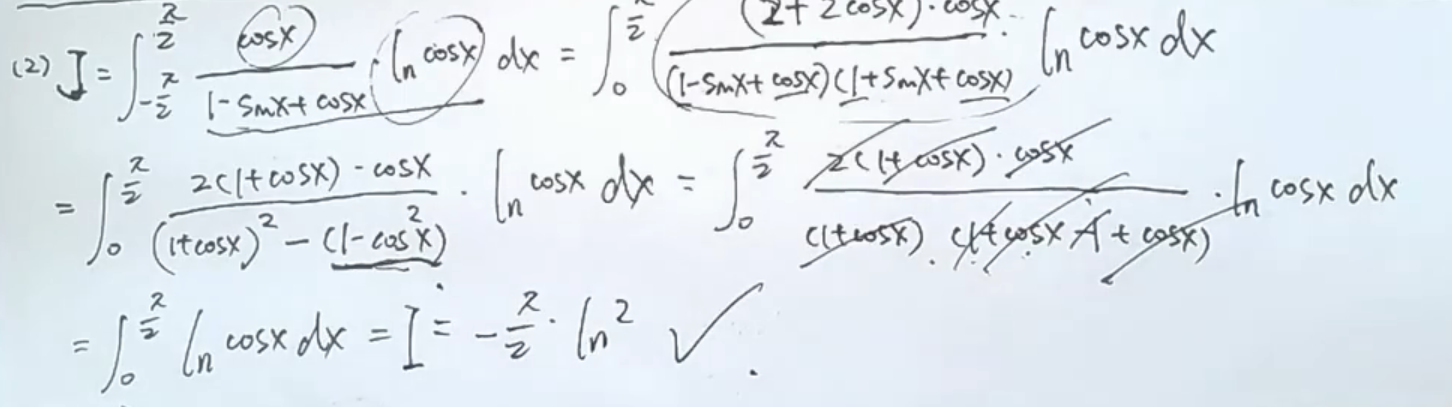 (2) J = ∫_{-π/2}^{π/2} cosx/(1-sinx+cosx) · ln cosx dx = ∫_0^{π/2} (2+2cosx)·cosx/((1-sinx+cosx)(1+sinx+cosx)) · ln cosx dx
= ∫_0^{π/2} 2(1+cosx)·cosx/((1+cosx)^2-(1-cos^2x)) · ln cosx dx = ∫_0^{π/2} 2(1+cosx)·cosx/((1+cosx)·(1+cosx-1+cosx)) · ln cosx dx
= ∫_0^{π/2} ln cosx dx = I = -π/2 · ln2 ✓